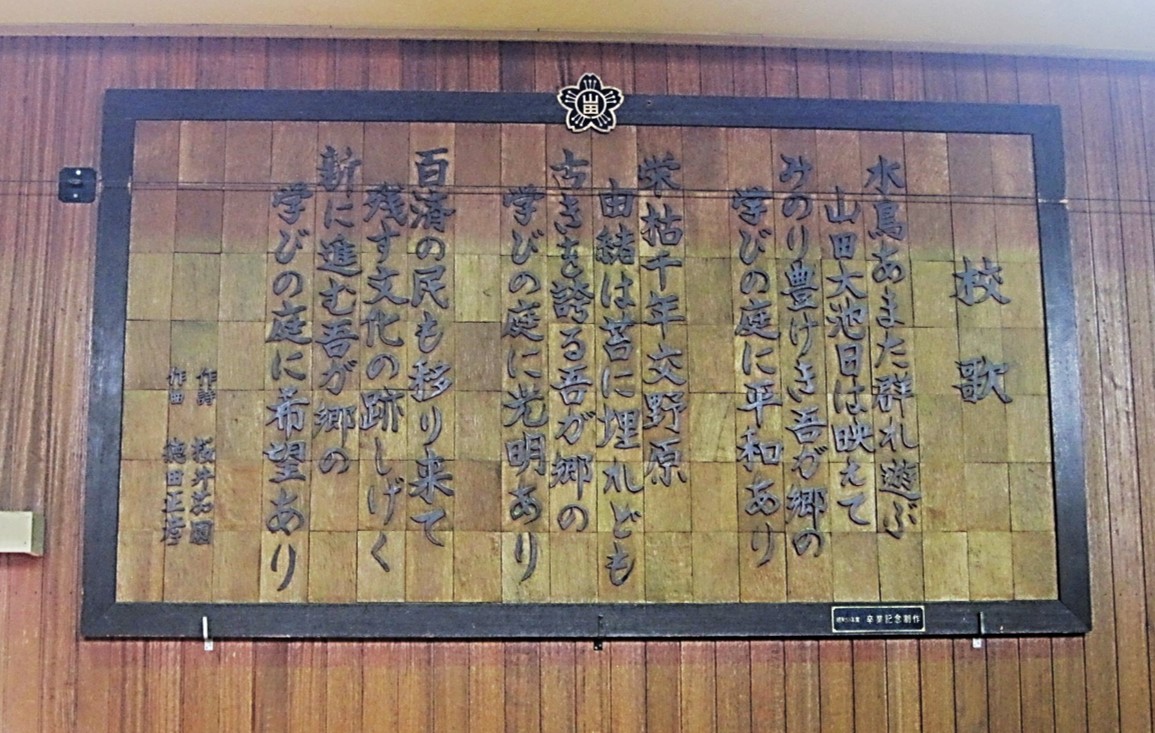 山田
校歌
水鳥あまた群れ遊ぶ
山田大池日は映えて
みのり豊けき吾が郷の
学びの庭に平和あり
栄枯千年交野原
由緒は苔に埋れども
古きを誇る吾が郷の
学びの庭に光明あり
百済の民も移り来て
残す文化の跡しげく
新に進む吾が郷の
学びの庭に希望あり
作詩
作曲 徳田正
卒業記念制作